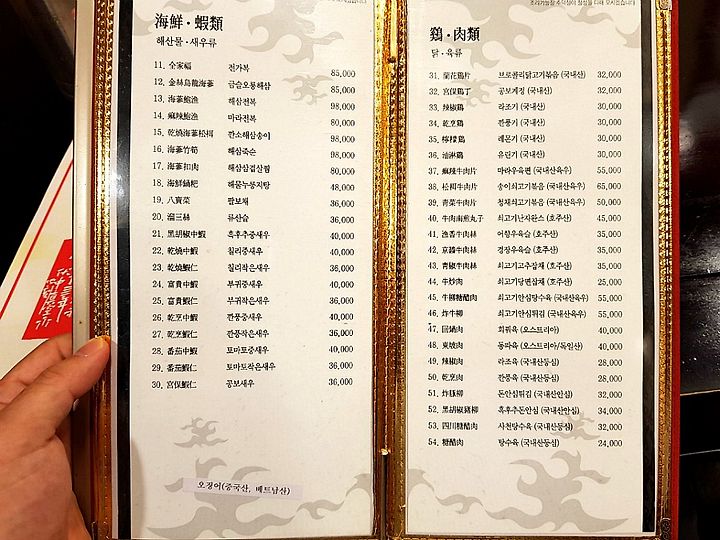 海鮮·蝦類
해산물·새우류
11. 全家福 전가복 85,000
12. 金絲烏龍海蔘 금슬오룡해삼 85,000
13. 海蔘鮑漁 해삼전복 98,000
14. 麻辣鮑漁 마라전복 80,000
15. 乾燒海蔘松栮 깐소해삼송이 98,000
16. 海蔘竹筍 해삼죽순 98,000
17. 海蔘扣肉 해삼삼겹살찜 80,000
18. 海鮮鍋粑 해물누룽지탕 48,000
19. 八寶菜 팔보채 36,000
20. 溜三絲 류산슬 36,000
21. 黑胡椒中蝦 흑후추중새우 40,000
22. 乾燒中蝦 칠리중새우 40,000
23. 乾燒蝦仁 칠리작은새우 36,000
24. 富貴中蝦 부귀중새우 40,000
25. 富貴蝦仁 부귀작은새우 36,000
26. 乾烹中蝦 깐풍중새우 40,000
27. 乾烹蝦仁 깐풍작은새우 36,000
28. 番茄中蝦 토마토중새우 40,000
29. 番茄蝦仁 토마토작은새우 36,000
30. 宮保蝦仁 공보새우 36,000
오징어(중국산, 베트남산)
鷄·肉類
닭·육류
31. 蘭花鷄片 브로콜리닭고기볶음 (국내산) 32,000
32. 宮保鷄丁 공보계정 (국내산) 32,000
33. 辣椒鷄 라조기 (국내산) 30,000
34. 乾烹鷄 깐풍기 (국내산) 30,000
35. 檸檬鷄 레몬기 (국내산) 30,000
36. 油淋鷄 유린기 (국내산) 30,000
37. 麻辣牛肉片 마라우육편 (국내산육우) 55,000
38. 松栮牛肉片 송이쇠고기볶음 (국내산육우) 65,000
39. 靑菜牛肉片 청채쇠고기볶음 (국내산육우) 50,000
40. 牛肉南煎丸子 쇠고기난자완스 (호주산) 45,000
41. 漁香牛肉絲 어향우육슬 (호주산) 35,000
42. 京醬牛肉絲 경장우육슬 (호주산) 35,000
43. 靑椒牛肉絲 쇠고기고추잡채 (호주산) 35,000
44. 牛炒肉 쇠고기당면잡채 (호주산) 25,000
45. 牛柳糖醋肉 쇠고기안심탕수육 (국내산육우) 55,000
46. 炸牛柳 쇠고기안심튀김 (국내산육우) 55,000
47. 回鍋肉 회궈육 (오스트리아) 40,000
48. 東坡肉 동파육 (오스트리아/독일산) 40,000
49. 辣椒肉 라조육 (국내산등심) 28,000
50. 乾烹肉 깐풍육 (국내산등심) 28,000
51. 炸豚柳 돈안심튀김 (국내산안심) 32,000
52. 黑胡椒豬柳 흑후추돈안심 (국내산안심) 34,000
53. 四川糖醋肉 사천탕수육 (국내산등심) 28,000
54. 糖醋肉 탕수육 (국내산등심) 24,000